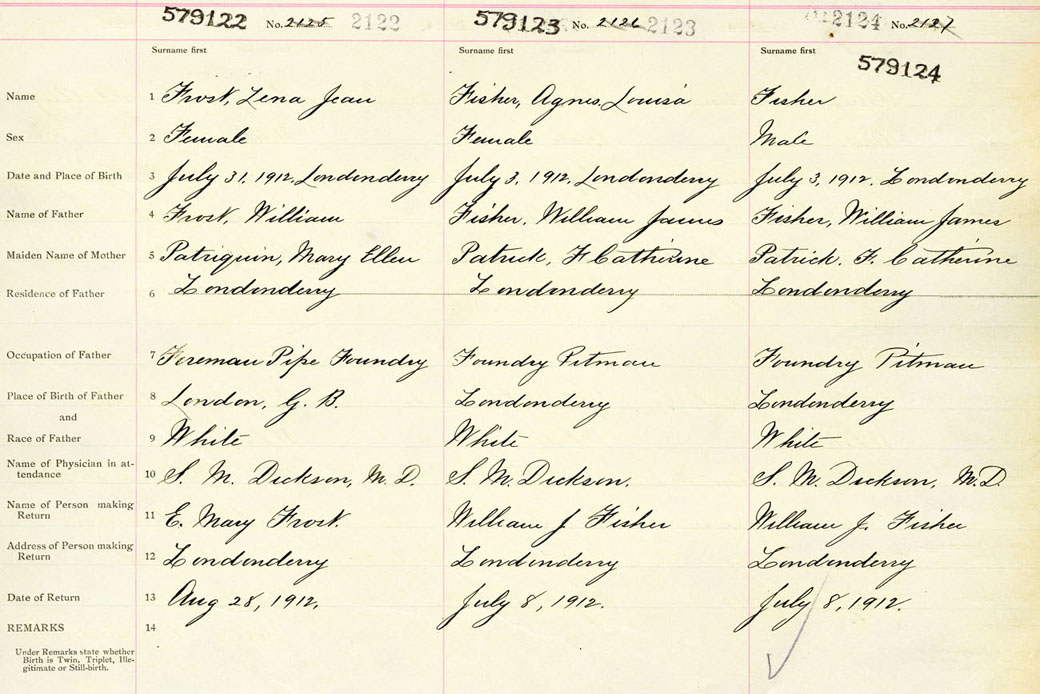 579122 No. 2125 2122 579123 No. 2126 2123 2124 No. 2127
Surname first Surname first Surname first
579124
Name 1 Frost, Lena Jean Fisher, Agnes Louisa Fisher
Sex 2 Female Female Male
Date and Place of Birth 3 July 31, 1912. Londonderry July 3, 1912, Londonderry July 3, 1912. Londonderry
Name of Father 4 Frost, William Fisher, William James Fisher, William James
Maiden Name of Mother 5 Patriquin, Mary Ellen Patrick, F Catherine Patrick. F. Catherine
Residence of Father 6 Londonderry Londonderry Londonderry
Occupation of Father 7 Foreman Pipe Foundry Foundry Pitman Foundry Pitman
Place of Birth of Father 8 London, G. B. Londonderry Londonderry
and
Race of Father 9 White White White
Name of Physician in at-
tendance 10 S. M. Dickson, M. D. S. M. Dickson. S. M. Dickson, M.D.
Name of Person making
Return 11 E. Mary Frost. William J Fisher William J. Fisher
Address of Person making
Return 12 Londonderry Londonderry Londonderry
Date of Return 13 Aug 28, 1912. July 8, 1912. July 8, 1912.
REMARKS 14
Under Remarks state whether
Birth is Twin, Triplet, Ille-
gitimate or Still-birth.